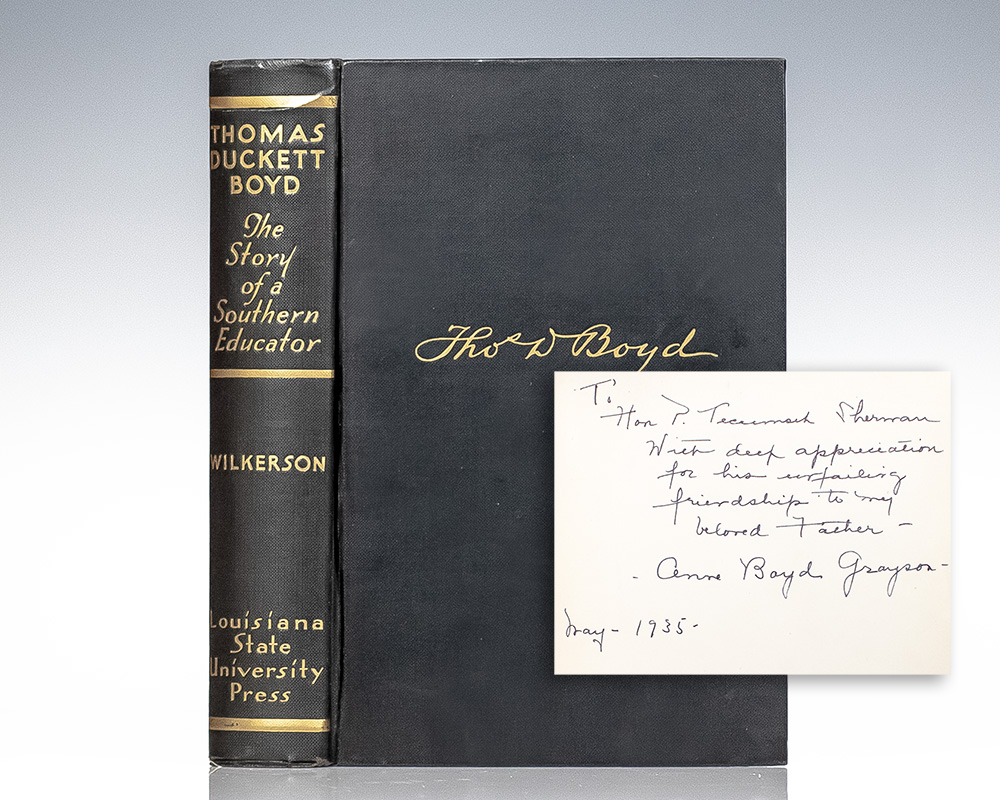 THOMAS
DUCKETT
BOYD
The
Story
of a
Southern
Educator
WILKERSON
Louisiana
State
University
Press
Thos D Boyd
To
Hon P. Tecumseh Sherman
With deep appreciation
for his unfailing
friendship to my
beloved Father -
- Anne Boyd Grayson -
May - 1935 -